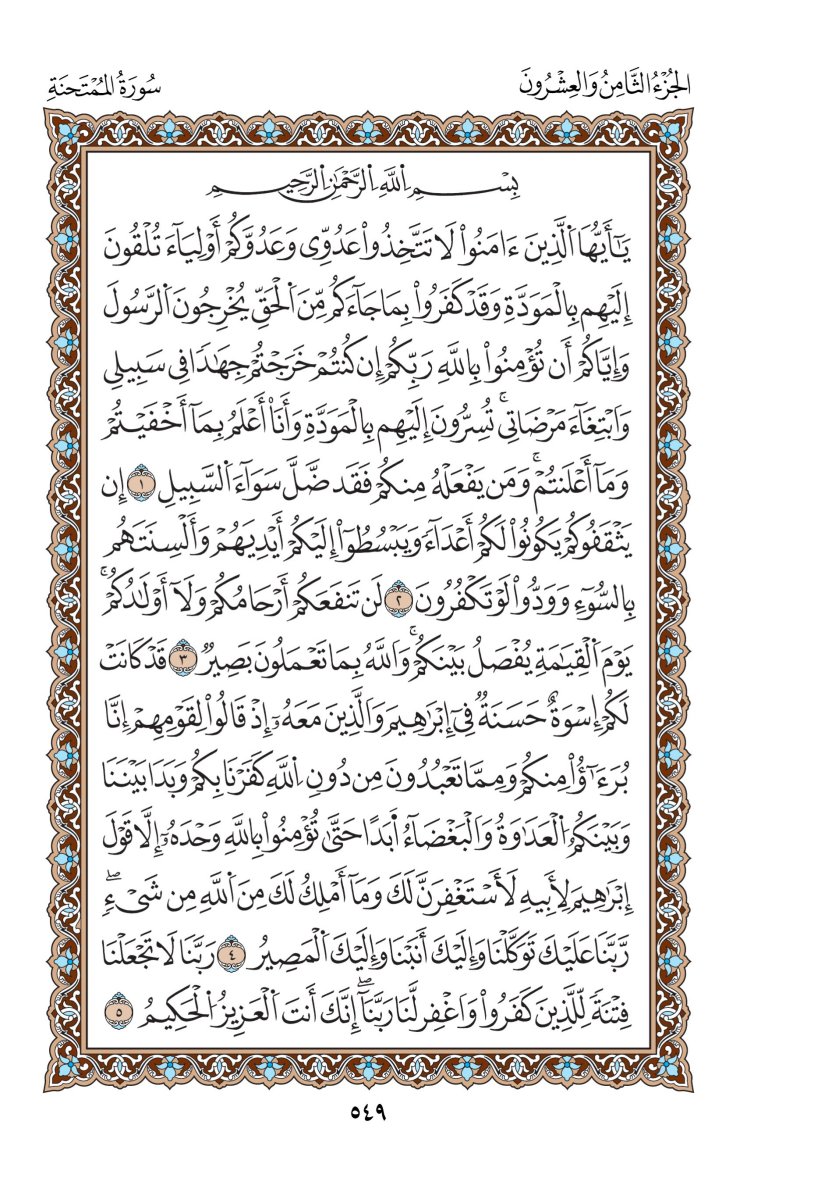 الجُزْءُ الثَّامِنُ وَالعِشْرُونَ
سُورَةُ المُمْتَحنَةِ
بِسْمِ ٱللَّهِ ٱلرَّحْمَٰنِ ٱلرَّحِيمِ
يَٰٓأَيُّهَا ٱلَّذِينَ ءَامَنُوا۟ لَا تَتَّخِذُوا۟ عَدُوِّى وَعَدُوَّكُمْ أَوْلِيَآءَ تُلْقُونَ
إِلَيْهِم بِٱلْمَوَدَّةِ وَقَدْ كَفَرُوا۟ بِمَا جَآءَكُم مِّنَ ٱلْحَقِّ يُخْرِجُونَ ٱلرَّسُولَ
وَإِيَّاكُمْ أَن تُؤْمِنُوا۟ بِٱللَّهِ رَبِّكُمْ إِن كُنتُمْ خَرَجْتُمْ جِهَٰدًا فِى سَبِيلِى
وَٱبْتِغَآءَ مَرْضَاتِىۚ تُسِرُّونَ إِلَيْهِم بِٱلْمَوَدَّةِ وَأَنَا۠ أَعْلَمُ بِمَآ أَخْفَيْتُمْ
وَمَآ أَعْلَنتُمْۚ وَمَن يَفْعَلْهُ مِنكُمْ فَقَد ضَّلَّ سَوَآءَ ٱلسَّبِيلِ ١ إِن
يَثْقَفُوكُمْ يَكُونُوا۟ لَكُمْ أَعْدَآءً وَيَبْسُطُوٓا۟ إِلَيْكُمْ أَيْدِيَهُمْ وَأَلْسِنَتَهُم
بِٱلسُّوٓءِ وَوَدُّوا۟ لَوْ تَكْفُرُونَ ٢ لَن تَنفَعَكُمْ أَرْحَامُكُمْ وَلَآ أَوْلَٰدُكُمْۚ
يَوْمَ ٱلْقِيَٰمَةِ يُفْصَلُ بَيْنَكُمْۚ وَٱللَّهُ بِمَا تَعْمَلُونَ بَصِيرٌ ٣ قَدْ كَانَتْ
لَكُمْ إِسْوَةٌ حَسَنَةٌ فِىٓ إِبْرَٰهِيمَ وَٱلَّذِينَ مَعَهُۥٓ إِذْ قَالُوا۟ لِقَوْمِهِمْ إِنَّا
بُرَءَٰٓؤُا۟ مِنكُمْ وَمِمَّا تَعْبُدُونَ مِن دُونِ ٱللَّهِ كَفَرْنَا بِكُمْ وَبَدَا بَيْنَنَا
وَبَيْنَكُمُ ٱلْعَدَٰوَةُ وَٱلْبَغْضَآءُ أَبَدًا حَتَّىٰ تُؤْمِنُوا۟ بِٱللَّهِ وَحْدَهُۥٓ إِلَّا قَوْلَ
إِبْرَٰهِيمَ لِأَبِيهِ لَأَسْتَغْفِرَنَّ لَكَ وَمَآ أَمْلِكُ لَكَ مِنَ ٱللَّهِ مِن شَىْءٍۖ
رَّبَّنَا عَلَيْكَ تَوَكَّلْنَا وَإِلَيْكَ أَنَبْنَا وَإِلَيْكَ ٱلْمَصِيرُ ٤ رَبَّنَا لَا تَجْعَلْنَا
فِتْنَةً لِّلَّذِينَ كَفَرُوا۟ وَٱغْفِر لَّنَا رَبَّنَآۖ إِنَّكَ أَنتَ ٱلْعَزِيزُ ٱلْحَكِيمُ ٥
٥٤٩